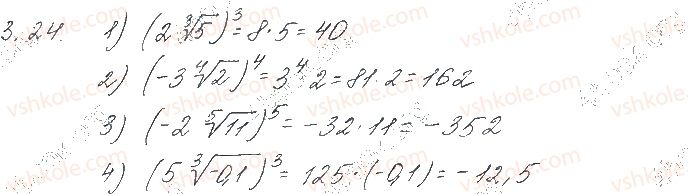 3.24. 1) (2∛5)³ = 8·5 = 40
2) (-3∜2)⁴ = 3⁴ 2 = 81·2 = 162
3) (-2 ⁵√11)⁵ = -32·11 = -352
4) (5 ∛-0,1)³ = 125·(-0,1) = -12,5
vshkole.com